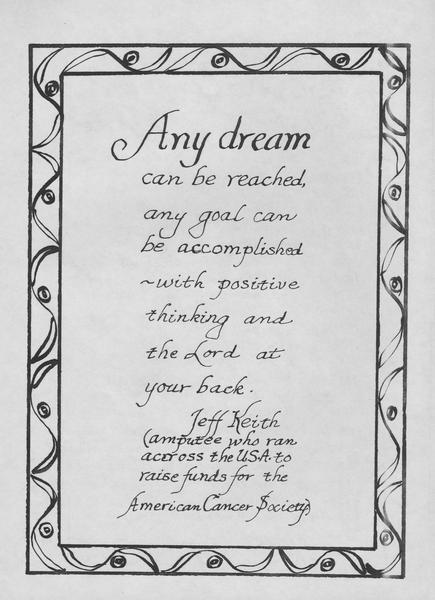 Any dream
can be reached,
any goal can
be accomplished
~with positive
thinking and
the Lord at
your back.
Jeff Keith
(amputee who ran
accross the USA. to
raise funds for the
American Cancer Society)